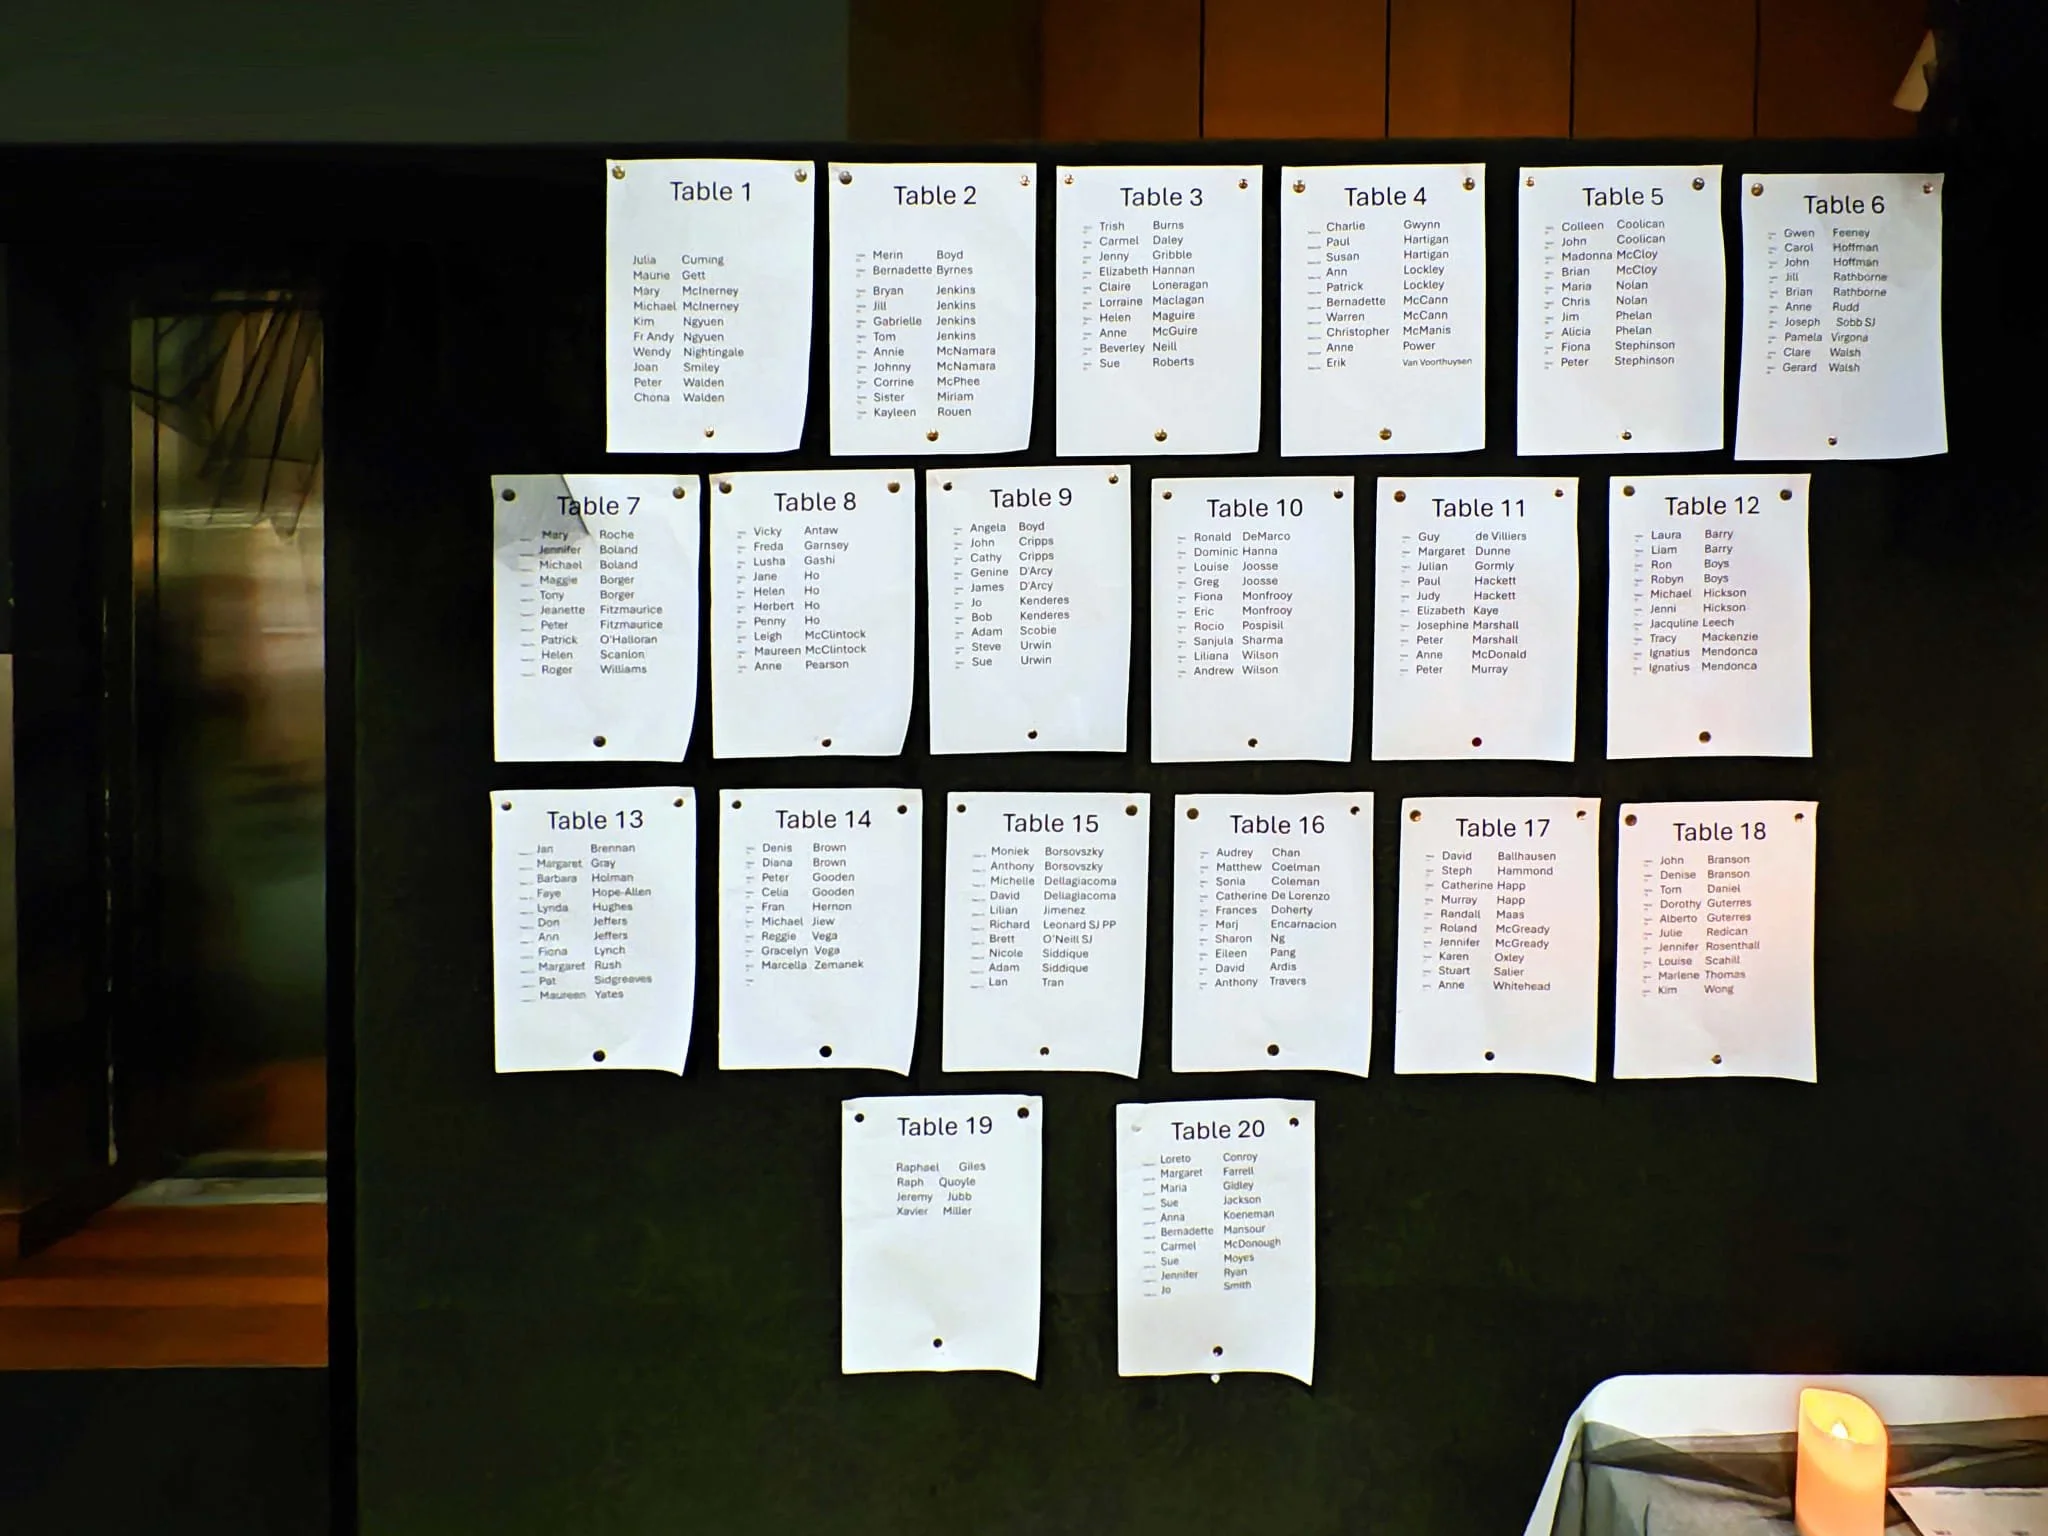 Table 1
Julia Cuming
Maurie Gett
Mary McInerney
Michael McInerney
Kim Ngyuen
Fr Andy Ngyuen
Wendy Nightingale
Joan Smiley
Peter Walden
Chona Walden
Table 2
Merin Boyd
Bernadette Byrnes
Bryan Jenkins
Jill Jenkins
Gabrielle Jenkins
Tom Jenkins
Annie McNamara
Johnny McNamara
Corrine McPhee
Sister Miriam
Kayleen Rouen
Table 3
Trish Burns
Carmel Daley
Jenny Gribble
Elizabeth Hannan
Claire Loneragan
Lorraine Maclagan
Helen Maguire
Anne McGuire
Beverley Neill
Sue Roberts
Table 4
Charlie Gwynn
Paul Hartigan
Susan Hartigan
Ann Lockley
Patrick Lockley
Bernadette McCann
Warren McCann
Christopher McManis
Anne Power
Erik Van Voorthuysen
Table 5
Colleen Coolican
John Coolican
Madonna McCloy
Brian McCloy
Maria Nolan
Chris Nolan
Jim Phelan
Alicia Phelan
Fiona Stephinson
Peter Stephinson
Table 6
Gwen Feeney
Carol Hoffman
John Hoffman
Jill Rathborne
Brian Rathborne
Anne Rudd
Joseph Sobb SJ
Pamela Virgona
Clare Walsh
Gerard Walsh
Table 7
Mary Roche
Jennifer Boland
Michael Boland
Maggie Borger
Tony Borger
Jeanette Fitzmaurice
Peter Fitzmaurice
Patrick O'Halloran
Helen Scanlon
Roger Williams
Table 8
Vicky Antaw
Freda Garnsey
Lusha Gashi
Jane Ho
Helen Ho
Herbert Ho
Penny Ho
Leigh McClintock
Maureen McClintock
Anne Pearson
Table 9
Angela Boyd
John Cripps
Cathy Cripps
Genine D'Arcy
James D'Arcy
Jo Kenderes
Bob Kenderes
Adam Scobie
Steve Urwin
Sue Urwin
Table 10
Ronald DeMarco
Dominic Hanna
Louise Joosse
Greg Joosse
Fiona Monfrooy
Eric Monfrooy
Rocio Pospisil
Sanjula Sharma
Liliana Wilson
Andrew Wilson
Table 11
Guy de Villiers
Margaret Dunne
Julian Gormly
Paul Hackett
Judy Hackett
Elizabeth Kaye
Josephine Marshall
Peter Marshall
Anne McDonald
Peter Murray
Table 12
Laura Barry
Liam Barry
Ron Boys
Robyn Boys
Michael Hickson
Jenni Hickson
Jacquline Leech
Tracy Mackenzie
Ignatius Mendonca
Ignatius Mendonca
Table 13
Jan Brennan
Margaret Gray
Barbara Holman
Faye Hope-Allen
Lynda Hughes
Don Jeffers
Ann Jeffers
Fiona Lynch
Margaret Rush
Pat Sidgreaves
Maureen Yates
Table 14
Denis Brown
Diana Brown
Peter Gooden
Celia Gooden
Fran Hernon
Michael Jiew
Reggie Vega
Gracelyn Vega
Marcella Zemanek
Table 15
Moniek Borsovszky
Anthony Borsovszky
Michelle Dellagiacoma
David Dellagiacoma
Lilian Jimenez
Richard Leonard SJ PP
Brett O'Neill SJ
Nicole Siddique
Adam Siddique
Lan Tran
Table 16
Audrey Chan
Matthew Coelman
Sonia Coleman
Catherine De Lorenzo
Frances Doherty
Marj Encarnacion
Sharon Ng
Eileen Pang
David Ardis
Anthony Travers
Table 17
David Ballhausen
Steph Hammond
Catherine Happ
Murray Happ
Randall Maas
Roland McGready
Jennifer McGready
Karen Oxley
Stuart Salier
Anne Whitehead
Table 18
John Branson
Denise Branson
Tom Daniel
Dorothy Guterres
Alberto Guterres
Julie Redican
Jennifer Rosenthall
Louise Scahill
Marlene Thomas
Kim Wong
Table 19
Raphael Giles
Raph Quoyle
Jeremy Jubb
Xavier Miller
Table 20
Loreto Conroy
Margaret Farrell
Maria Gidley
Sue Jackson
Anna Koeneman
Bernadette Mansour
Carmel McDonough
Sue Moyes
Jennifer Ryan
Jo Smith